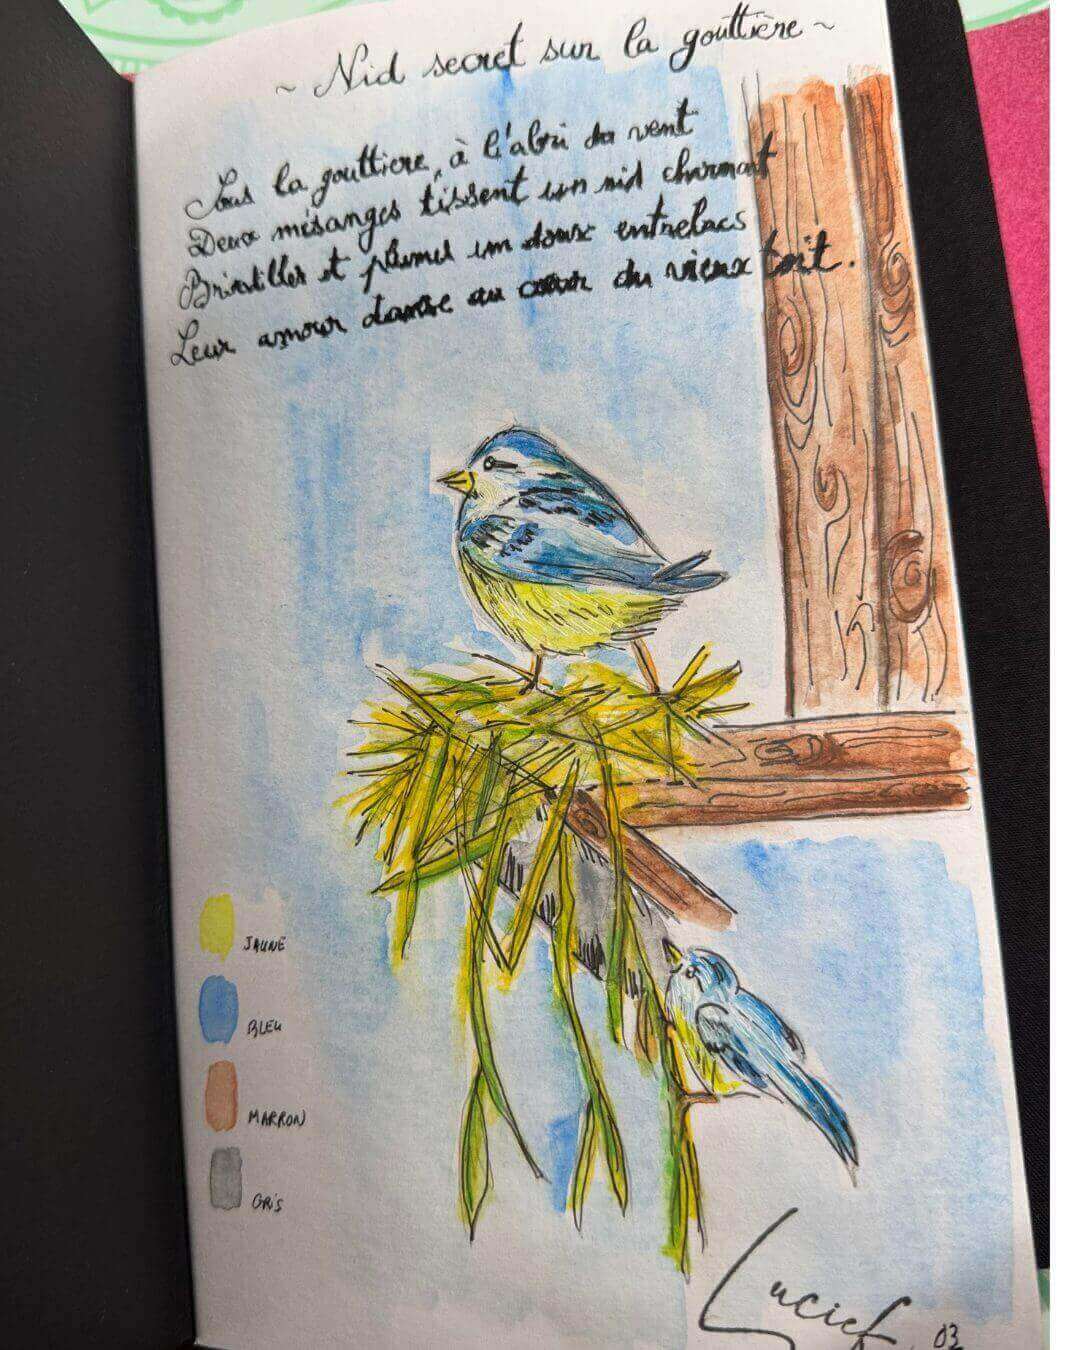 ~ Nid secret sur la gouttière ~
Sous la gouttiere, à l'abri du vent
Deux mésanges tissent un nid charmant
Brindilles et plumes un doux entrelacs
Leur amour danse au cœur du vieux toit.
JAUNE
BLEU
MARRON
GRiS
Lucie F. 03